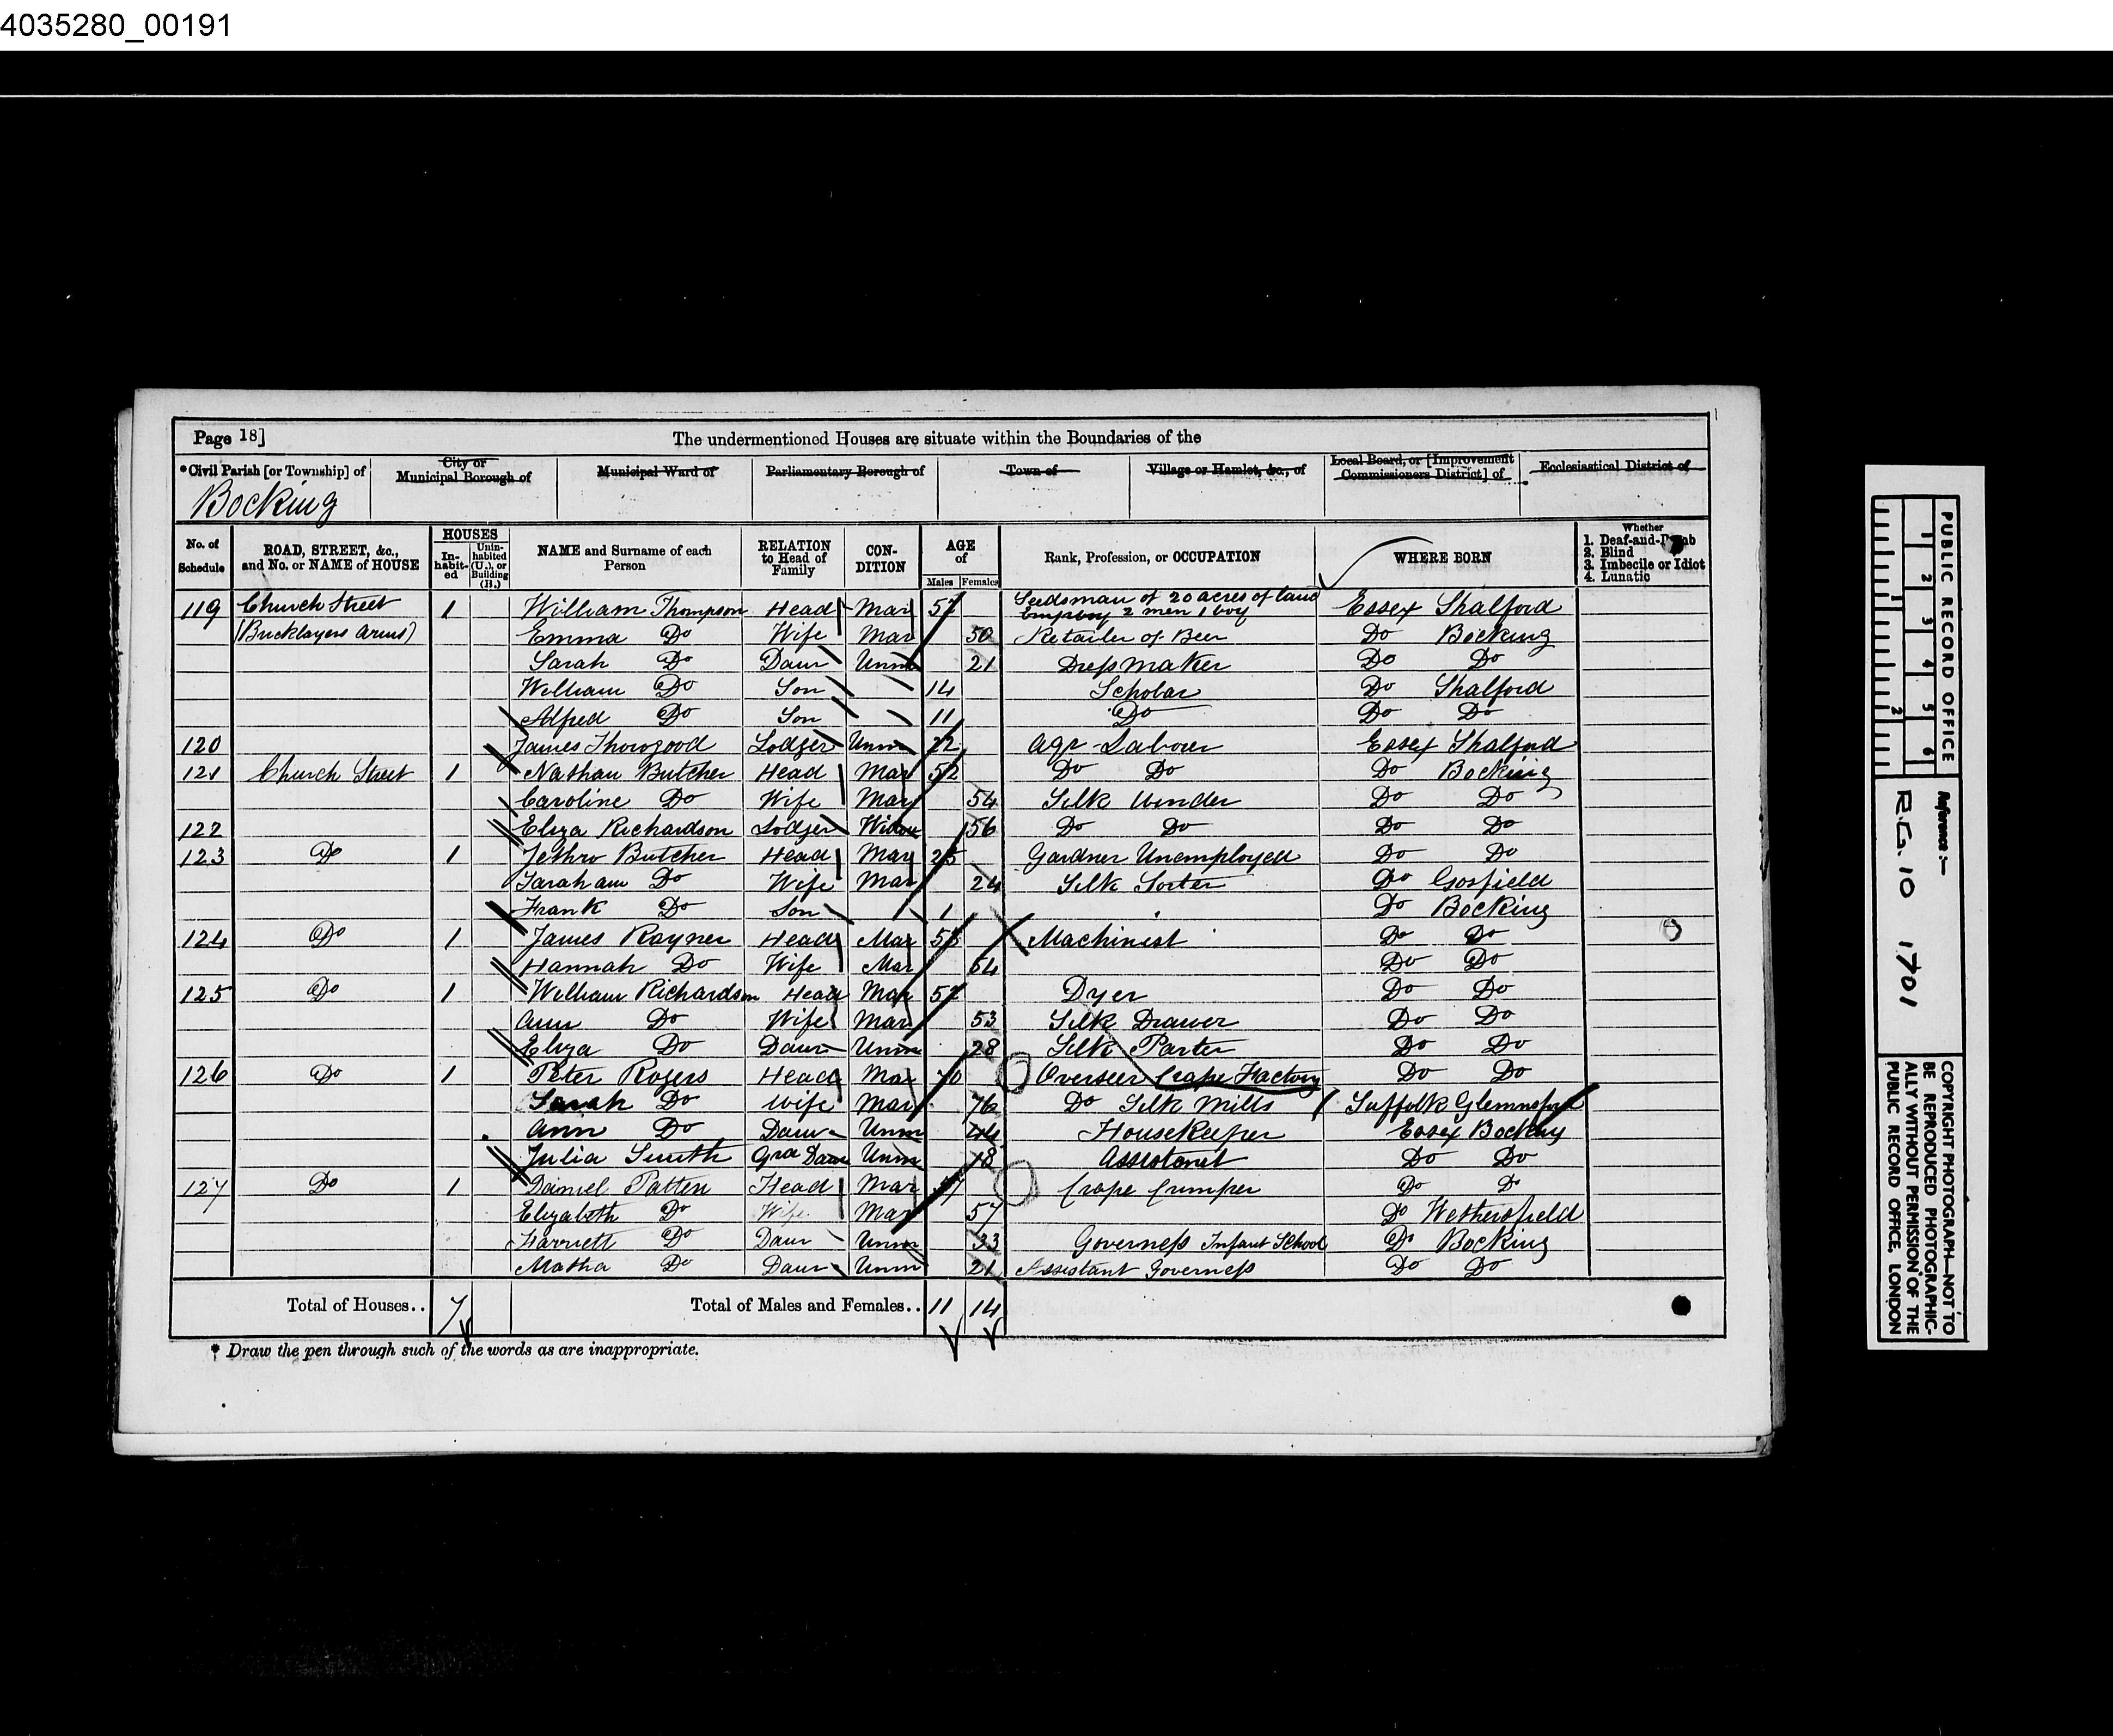 4035280_00191
Page 18]
The undermentioned Houses are situate within the Boundaries of the
*Civil Parish [or Township] of
City or Municipal Borough of
Municipal Ward of
Parliamentary Borough of
Town of
Village or Hamlet, &c., of
Local Board, or [Improvement Commissioners District] of
Ecclesiastical District of
Bocking
No. of Schedule
ROAD, STREET, &c., and No. or NAME of HOUSE
HOUSES
In-habit-ed
Unin-habited (U.), or Building (B.)
NAME and Surname of each Person
RELATION to Head of Family
CON-DITION
AGE of
Males
Females
Rank, Profession, or OCCUPATION
WHERE BORN
Whether
1. Deaf-and-Dumb
2. Blind
3. Imbecile or Idiot
4. Lunatic
119 Church Street 1 William Thompson Head Mar 57 Seedsman of 20 acres of land Employ 2 men 1 boy Essex Shalford
(Bricklayers Arms) Emma Do Wife Mar 50 Retailer of Beer Do Bocking
Sarah Do Daur Unm 21 Dressmaker Do Do
William Do Son 14 Scholar Do Shalford
Alfred Do Son 11 Do Do Do
120 James Thorogood Lodger Unm 22 Agr Labour Essex Shalford
121 Church Street 1 Nathan Butcher Head Mar 52 Do Do Do Bocking
Caroline Do Wife Mar 54 Silk Winder Do Do
122 Eliza Richardson Lodger Widow 56 Do Do Do Do
123 Do 1 Jethro Butcher Head Mar 25 Gardner Unemployed Do Do
Sarah ann Do Wife Mar 24 Silk Sorter Do Gosfield
Frank Do Son 1 Do Bocking
124 Do 1 James Rayner Head Mar Machinist Do Do
Hannah Do Wife Mar 54 Do Do
125 Do 1 William Richardson Head Mar 57 Dyer Do Do
Ann Do Wife Mar 53 Silk Drawer Do Do
Eliza Do Daur Unm 28 Silk Parter Do Do
126 Do 1 Peter Rogers Head Mar 70 Overseer Crape Factory Do Do
Sarah Do Wife Mar Do Silk Mills Suffolk Glemnsford
Ann Do Daur Unm 44 Housekeeper Essex Bocking
Julia Smith Gra Daur Unm 18 Assistant Do Do
127 Do 1 Daniel Patten Head Mar Crape Crimper Do Do
Elizabeth Do Wife Mar 57 Do Wethersfield
Harriett Do Daur Unm 33 Governess Infant School Do Bocking
Matha Do Daur Unm 21 Assistant Governess Do Do
Total of Houses.. 7
Total of Males and Females.. 11 14
* Draw the pen through such of the words as are inappropriate.
PUBLIC RECORD OFFICE
1 2 3 4 5 6
1 2
Reference:-
R.G. 10 1701
COPYRIGHT PHOTOGRAPH—NOT TO BE REPRODUCED PHOTOGRAPHIC-ALLY WITHOUT PERMISSION OF THE PUBLIC RECORD OFFICE, LONDON